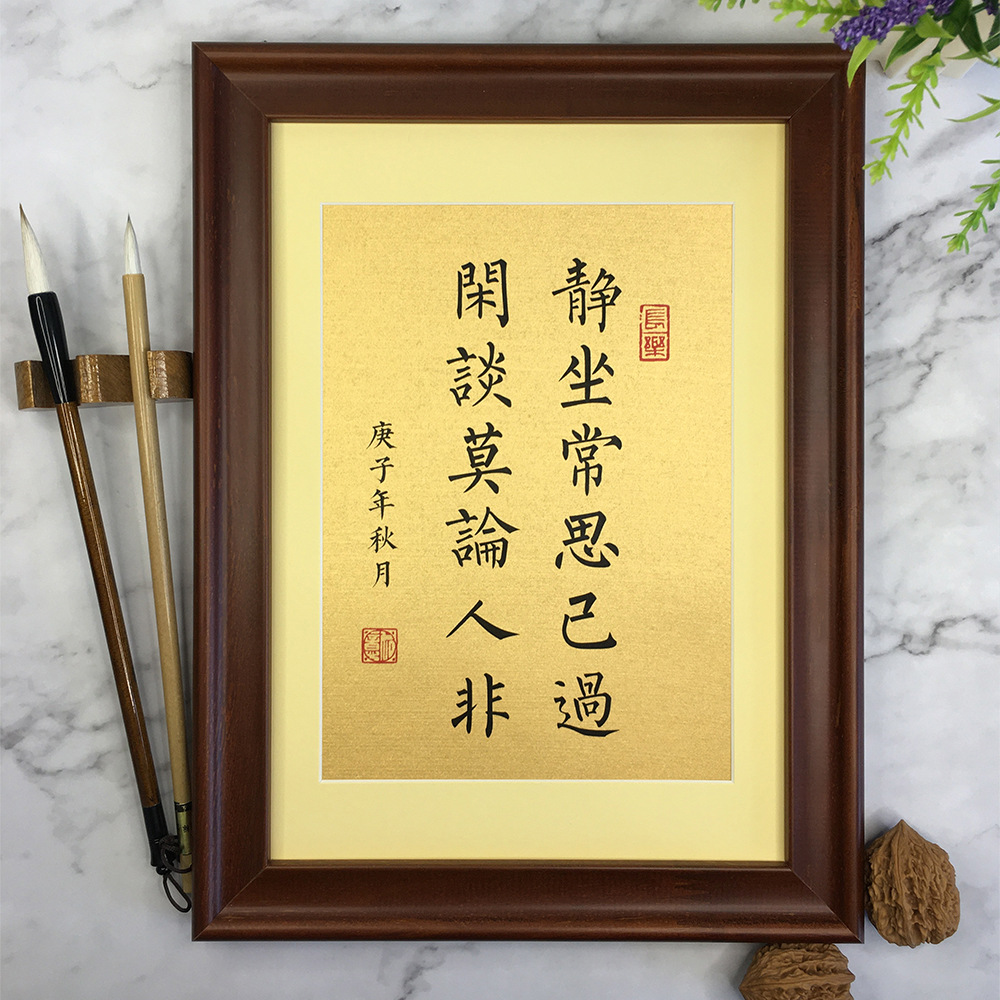 長樂
静坐常思己過
閑談莫論人非
庚子年秋月